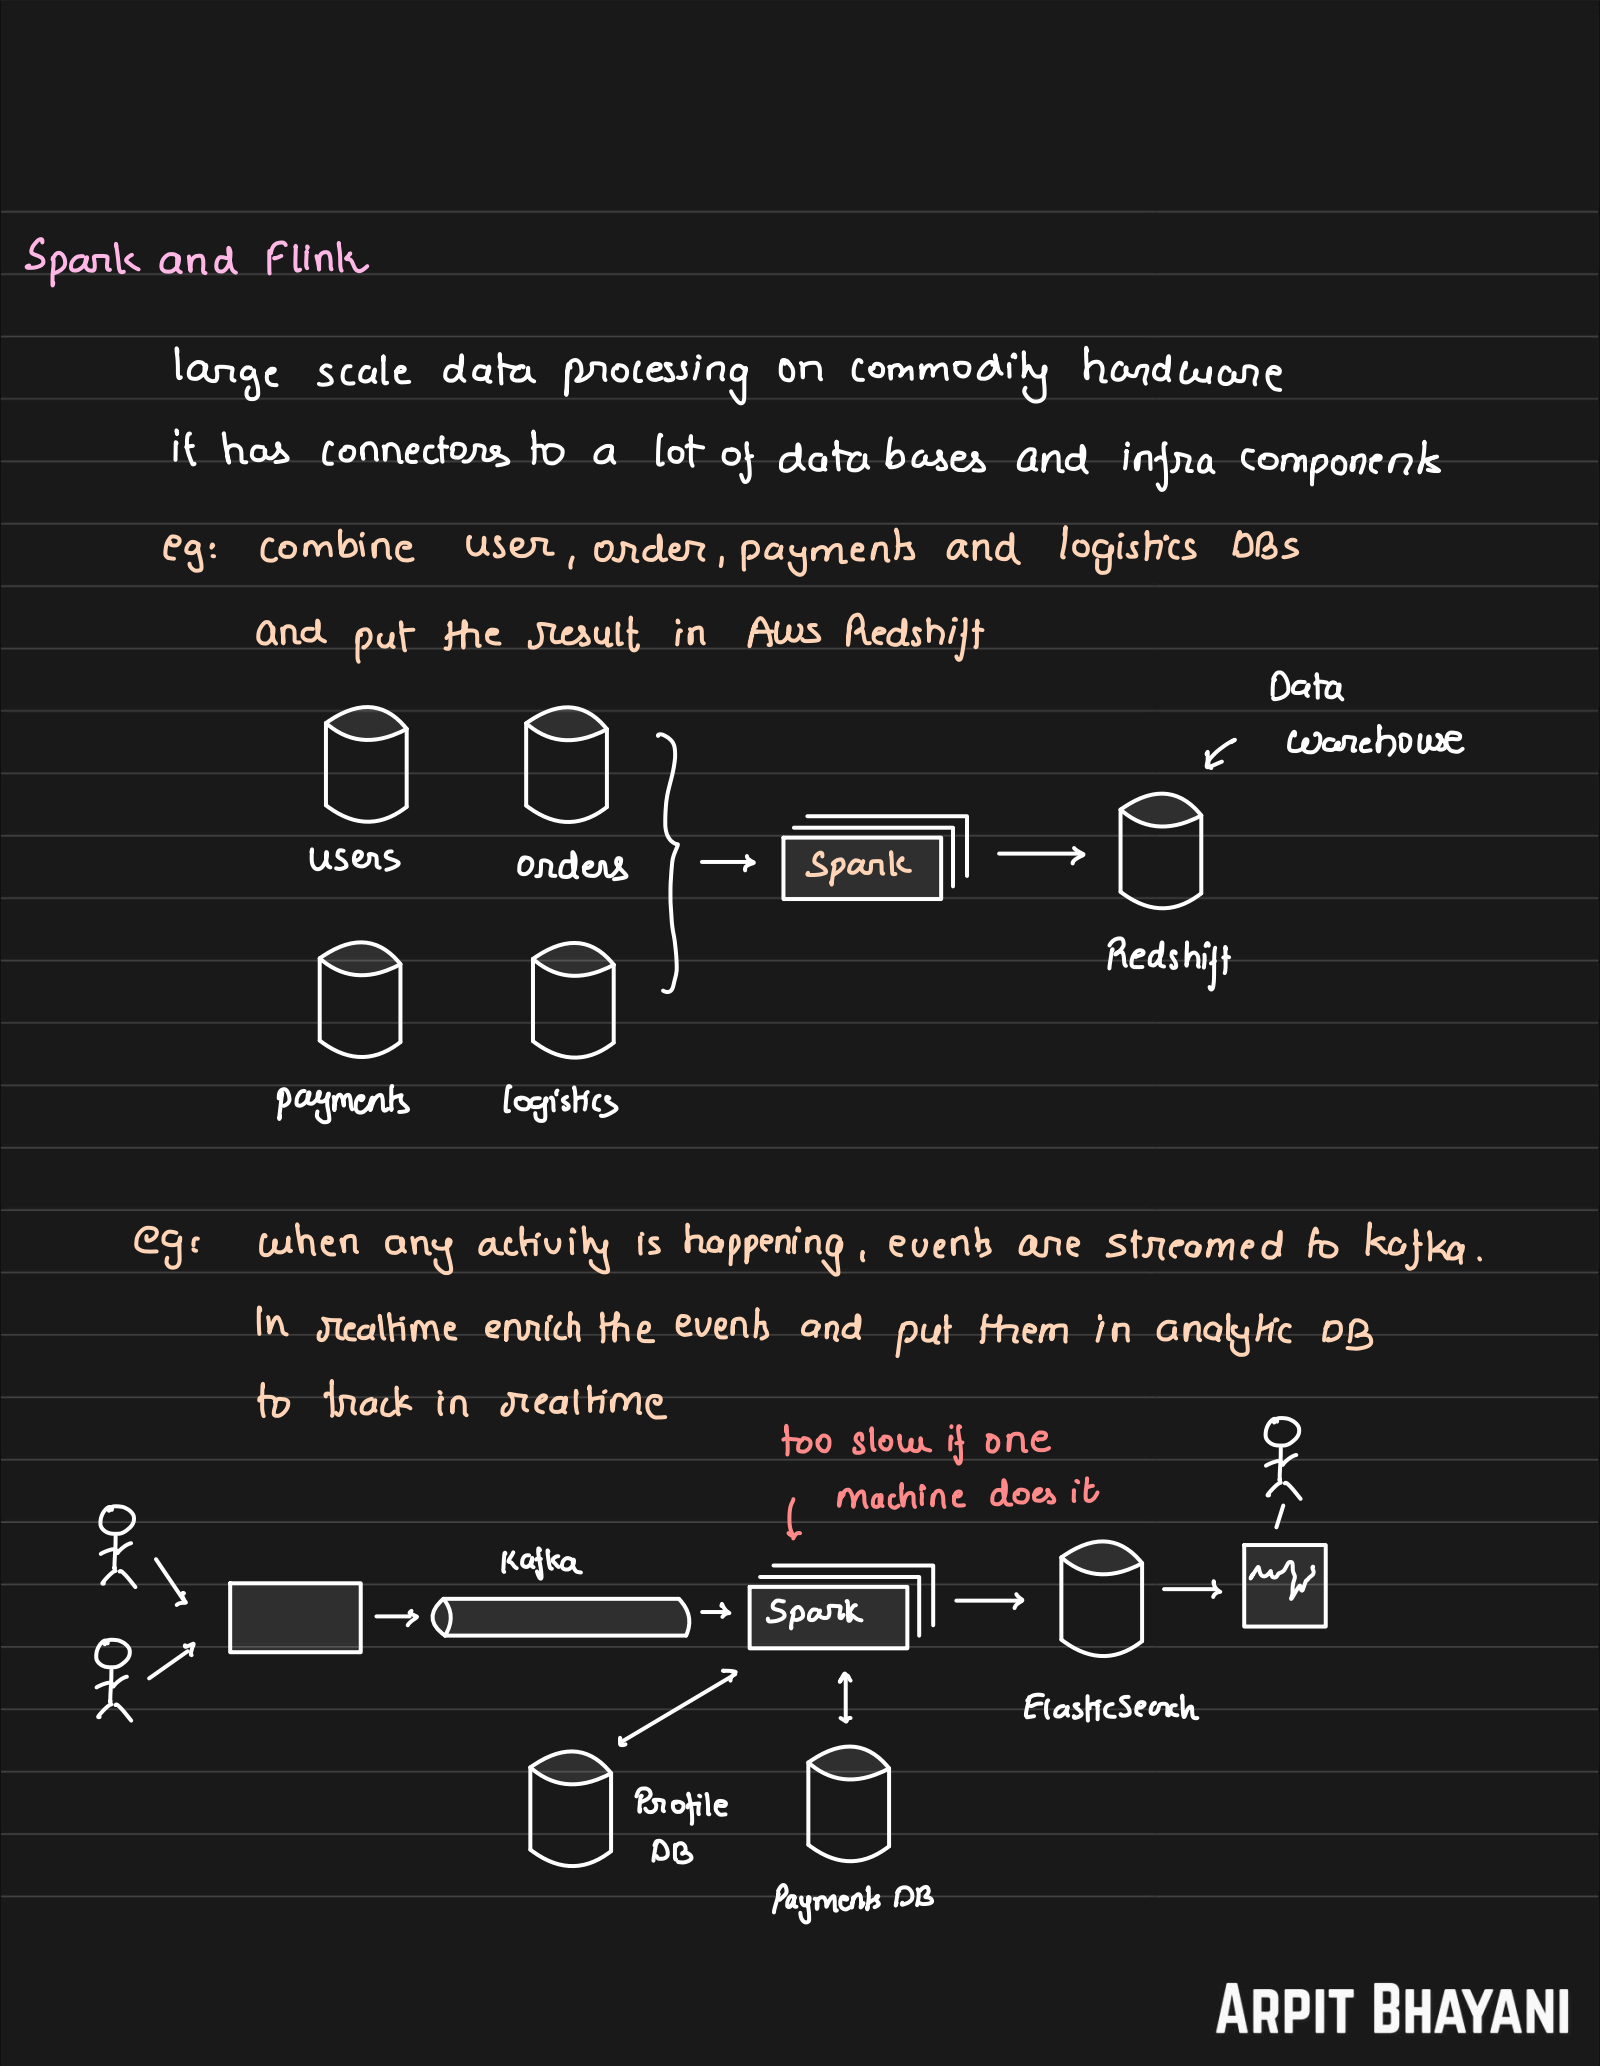 Spark and Flink
large scale data processing on commodity hardware
it has connectors to a lot of databases and infra components
eg: combine user, order, payments and logistics DBs
and put the result in AWS Redshift
Data
warehouse
users
orders
Spark
Redshift
payments
logistics
eg: when any activity is happening, events are streamed to kafka.
In realtime enrich the events and put them in analytic DB
to track in realtime
too slow if one
machine does it
Kafka
Spark
ElasticSearch
Profile
DB
Payments DB
ARPIT BHAYANI